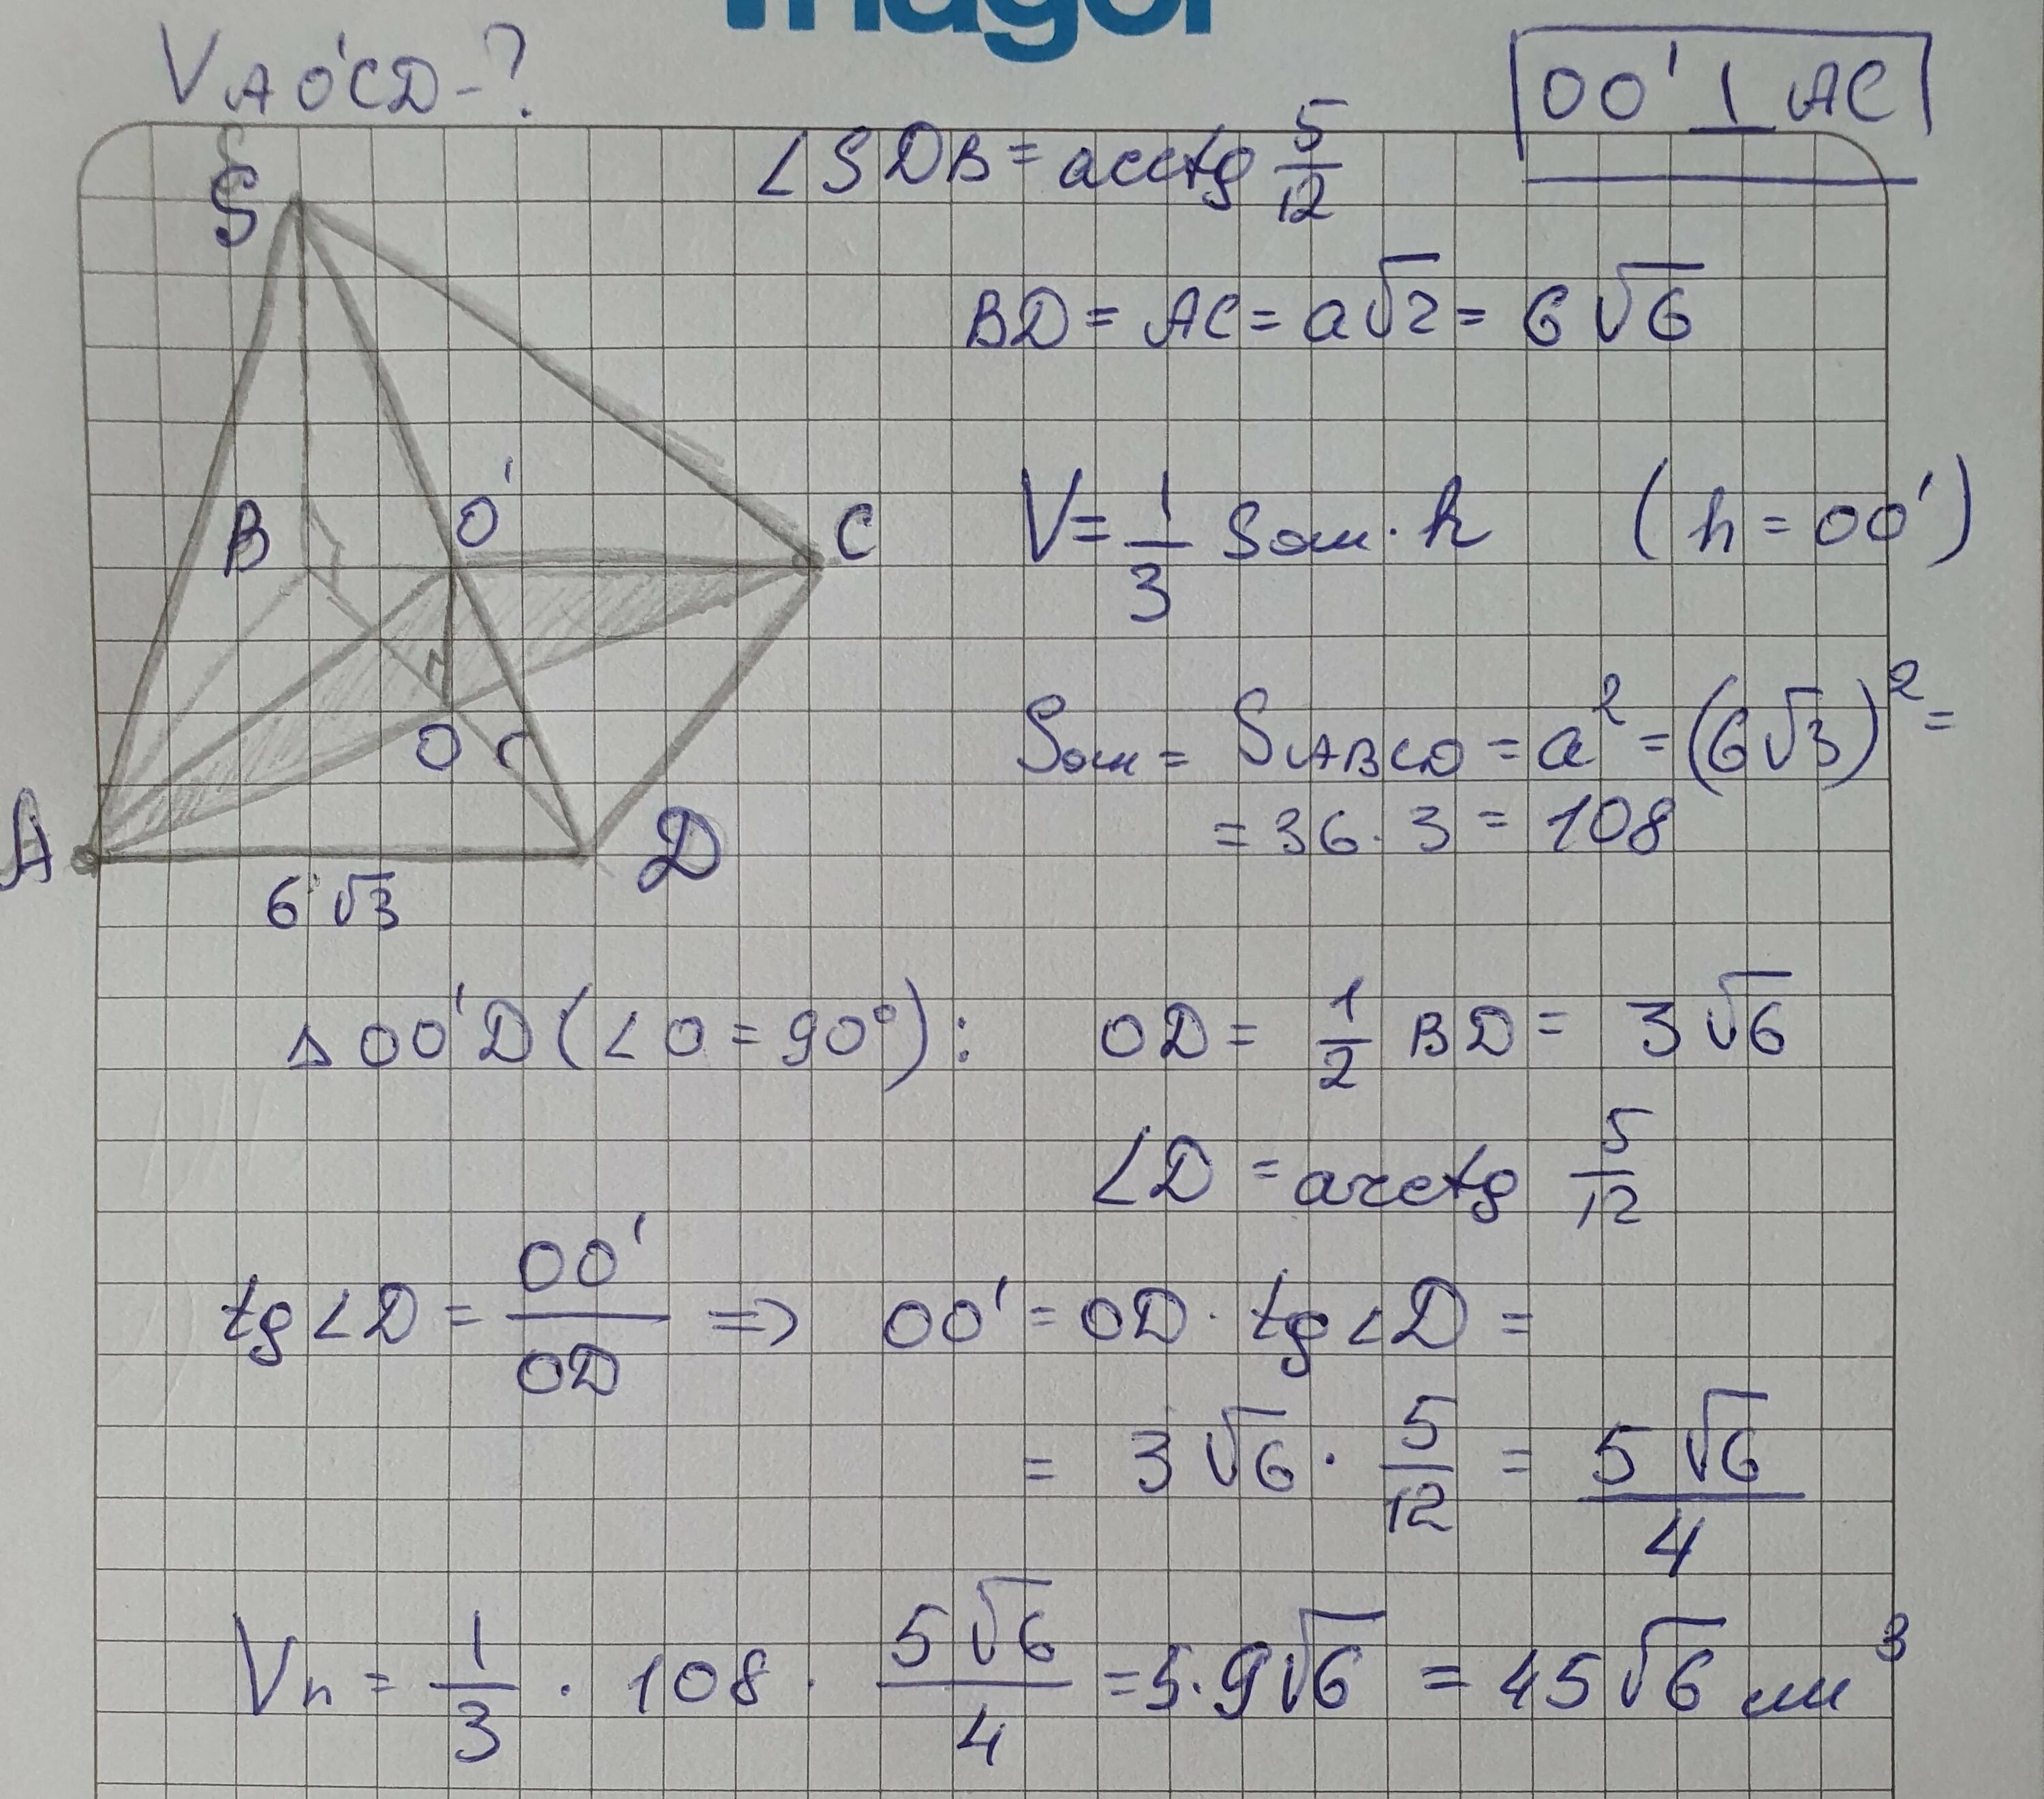 V AO'CD - ?
OO' ⊥ AC
∠SDB = arctg 5/12
S
BD = AC = a√2 = 6√6
B
O'
C
V = 1/3 Sосн · h (h = OO')
O
Sосн = SABCD = a² = (6√3)² =
= 36 · 3 = 108
A
D
6√3
△OO'D (∠O = 90°): OD = 1/2 BD = 3√6
∠D = arctg 5/12
tg∠D = OO'/OD => OO' = OD · tg∠D =
= 3√6 · 5/12 = 5√6/4
Vn = 1/3 · 108 · 5√6/4 = 5·9√6 = 45√6 см³